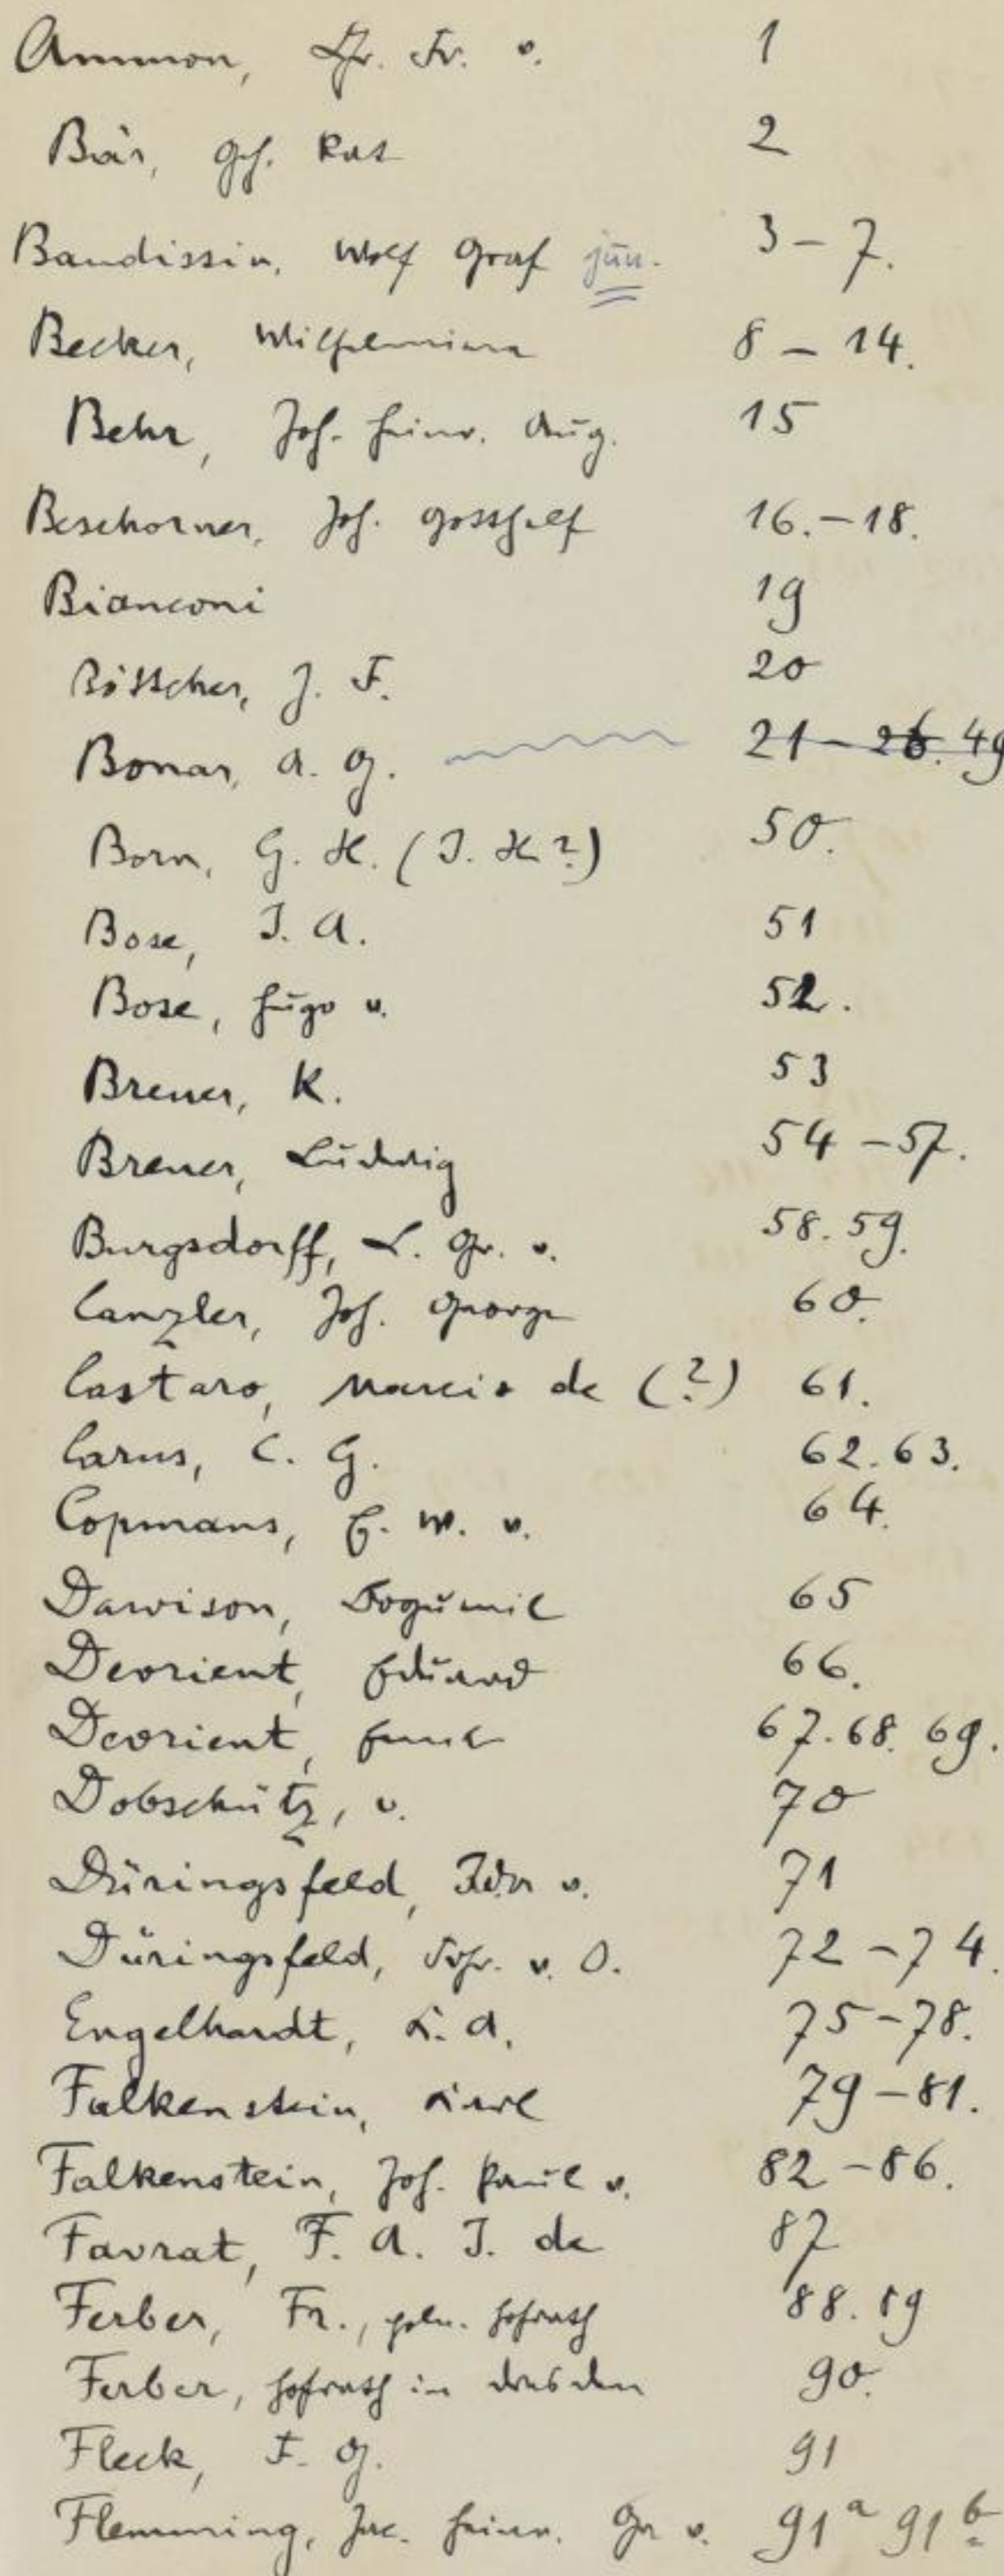 Ammon, Fr. Fr. v. 1
Bär, Geh. Rat 2
Baudissin, Wolf Graf jun. 3 – 7.
Becker, Wilhelmine 8 – 14.
Behr, Joh. Heinr. Aug. 15
Beschorner, Joh. Gotthelf 16. – 18.
Bianconi 19
Böttcher, J. F. 20
Bonar, A. G. 21 – 26. 49
Born, G. H. (J. H?) 50.
Bose, J. A. 51
Bose, Hugo v. 52.
Breuer, K. 53
Breuer, Ludwig 54 – 57.
Burgsdorff, L. Gr. v. 58. 59.
Canzler, Joh. George 60.
Castaro, Marcis de (?) 61.
Carus, C. G. 62. 63.
Copmans, E. W. v. 64.
Dawison, Bogumil 65
Devrient, Eduard 66.
Devrient, Emil 67. 68. 69.
Dobschütz, v. 70
Düringsfeld, Ida v. 71
Düringsfeld, Frhr. v. O. 72 – 74.
Engelhardt, K. A. 75 – 78.
Falkenstein, Karl 79 – 81.
Falkenstein, Joh. Paul v. 82 – 86.
Favrat, F. A. J. de 87
Ferber, Fr., poln. Hofrath 88. 89
Ferber, Hofrath in Dresden 90.
Fleck, F. G. 91
Flemming, Jac. Heinr. Gr v. 91a 91b